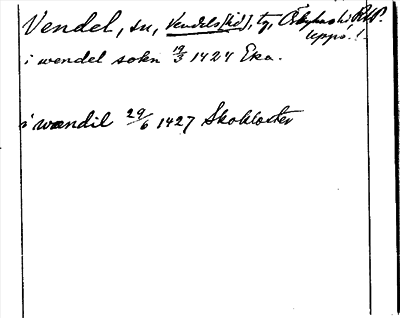 Vendel, sn, Vendels [hd], tg, Örbyhus hd RAP.
Upps. l
i wendel sokn 19/3 1424 Eka.
i wændil 29/6 1427 Skokloster